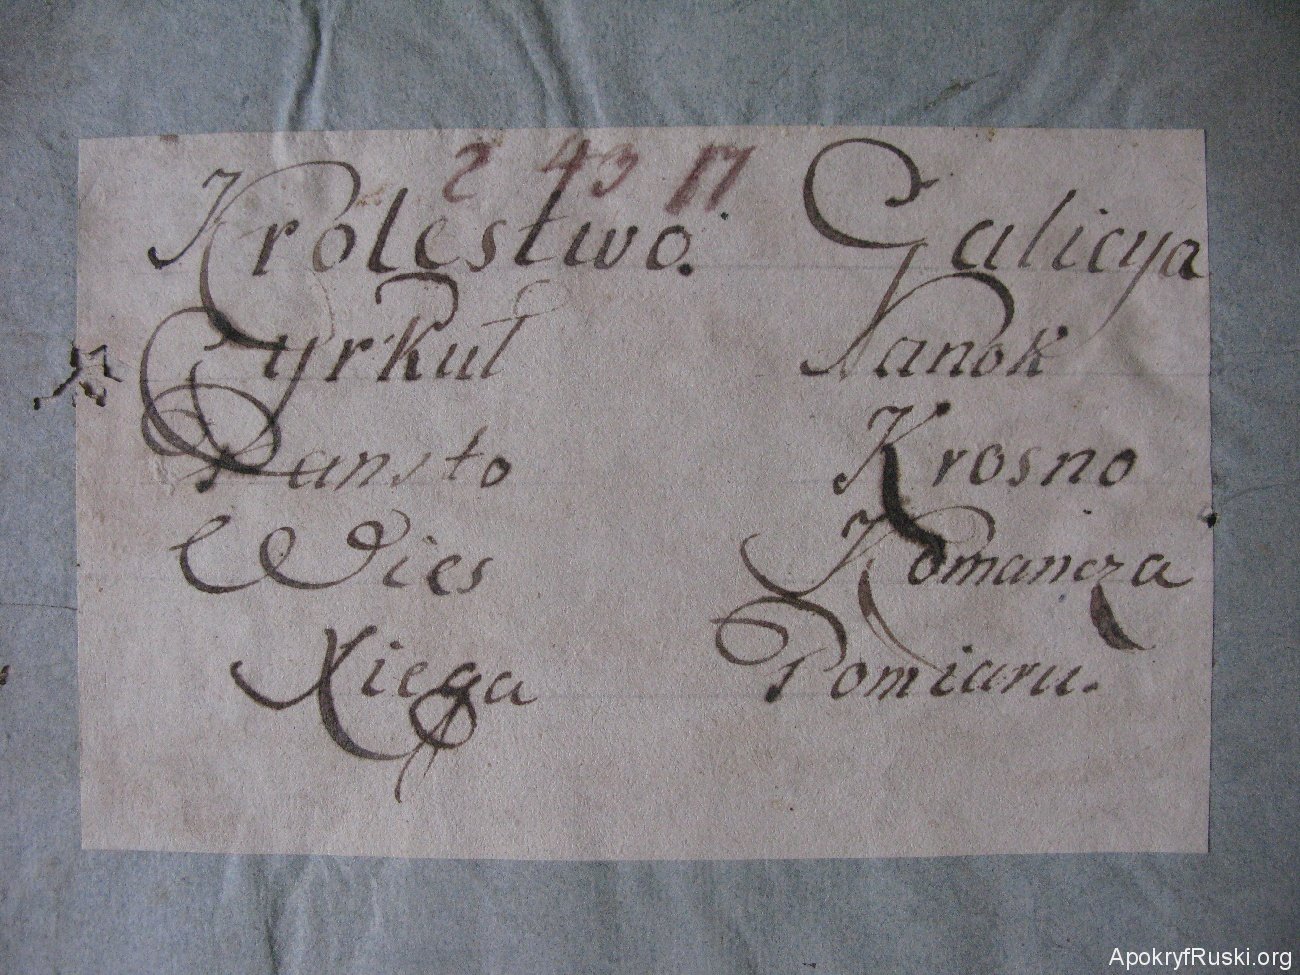 2 43 17
Krolestwo. Galicya
Cyrkuł Sanok
Pansto Krosno
Wies Komancza
Xiega Pomiaru.
ApokryfRuski.org